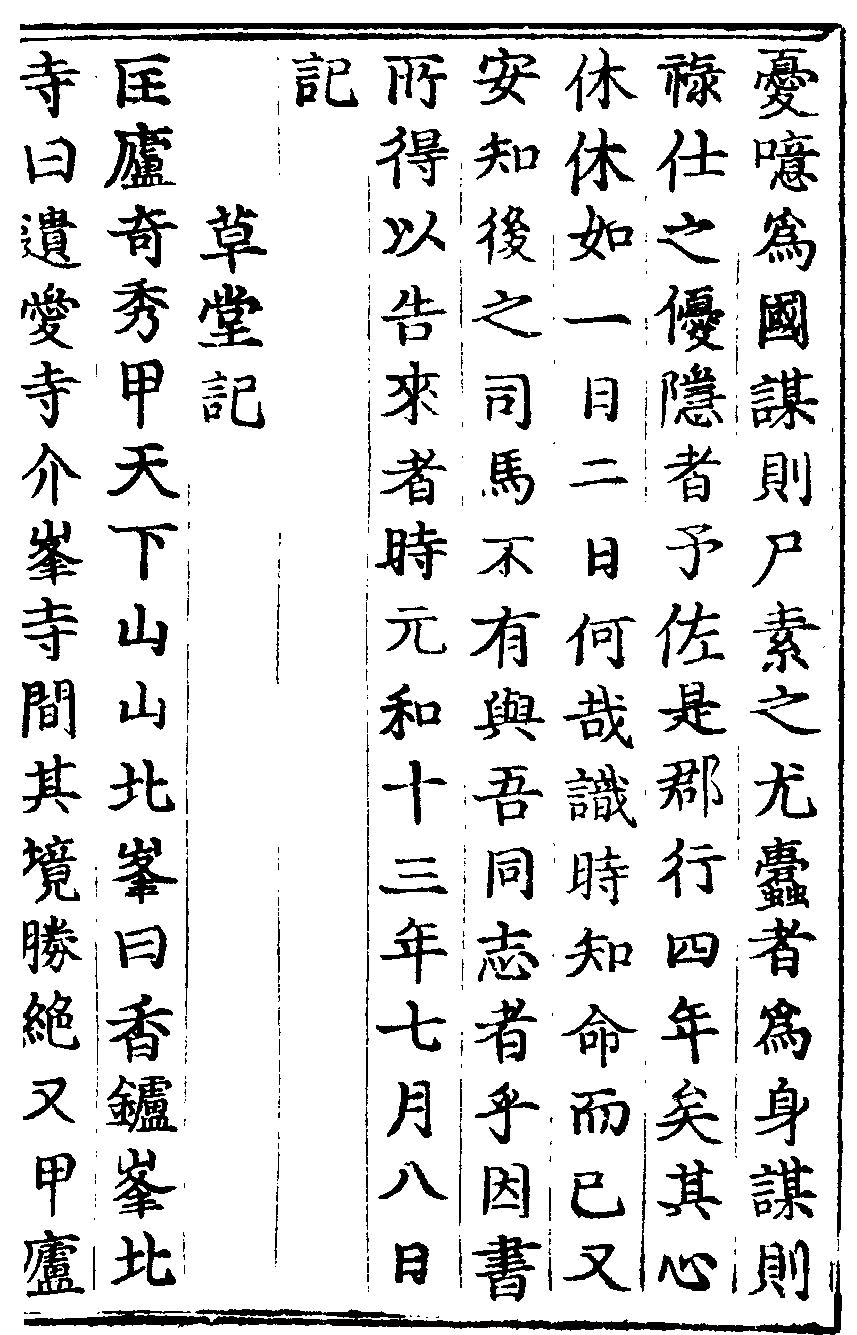 憂噫為國謀則尸素之尤蠹者為身謀則
祿仕之優隱者予佐是郡行四年矣其心
休休如一日二日何哉識時知命而已又
安知後之司馬不有與吾同志者乎因書
所得以告來者時元和十三年七月八日
記
草堂記
匡廬奇秀甲天下山山北峯曰香鑪峯北
寺曰遺愛寺介峯寺間其境勝絶又甲廬